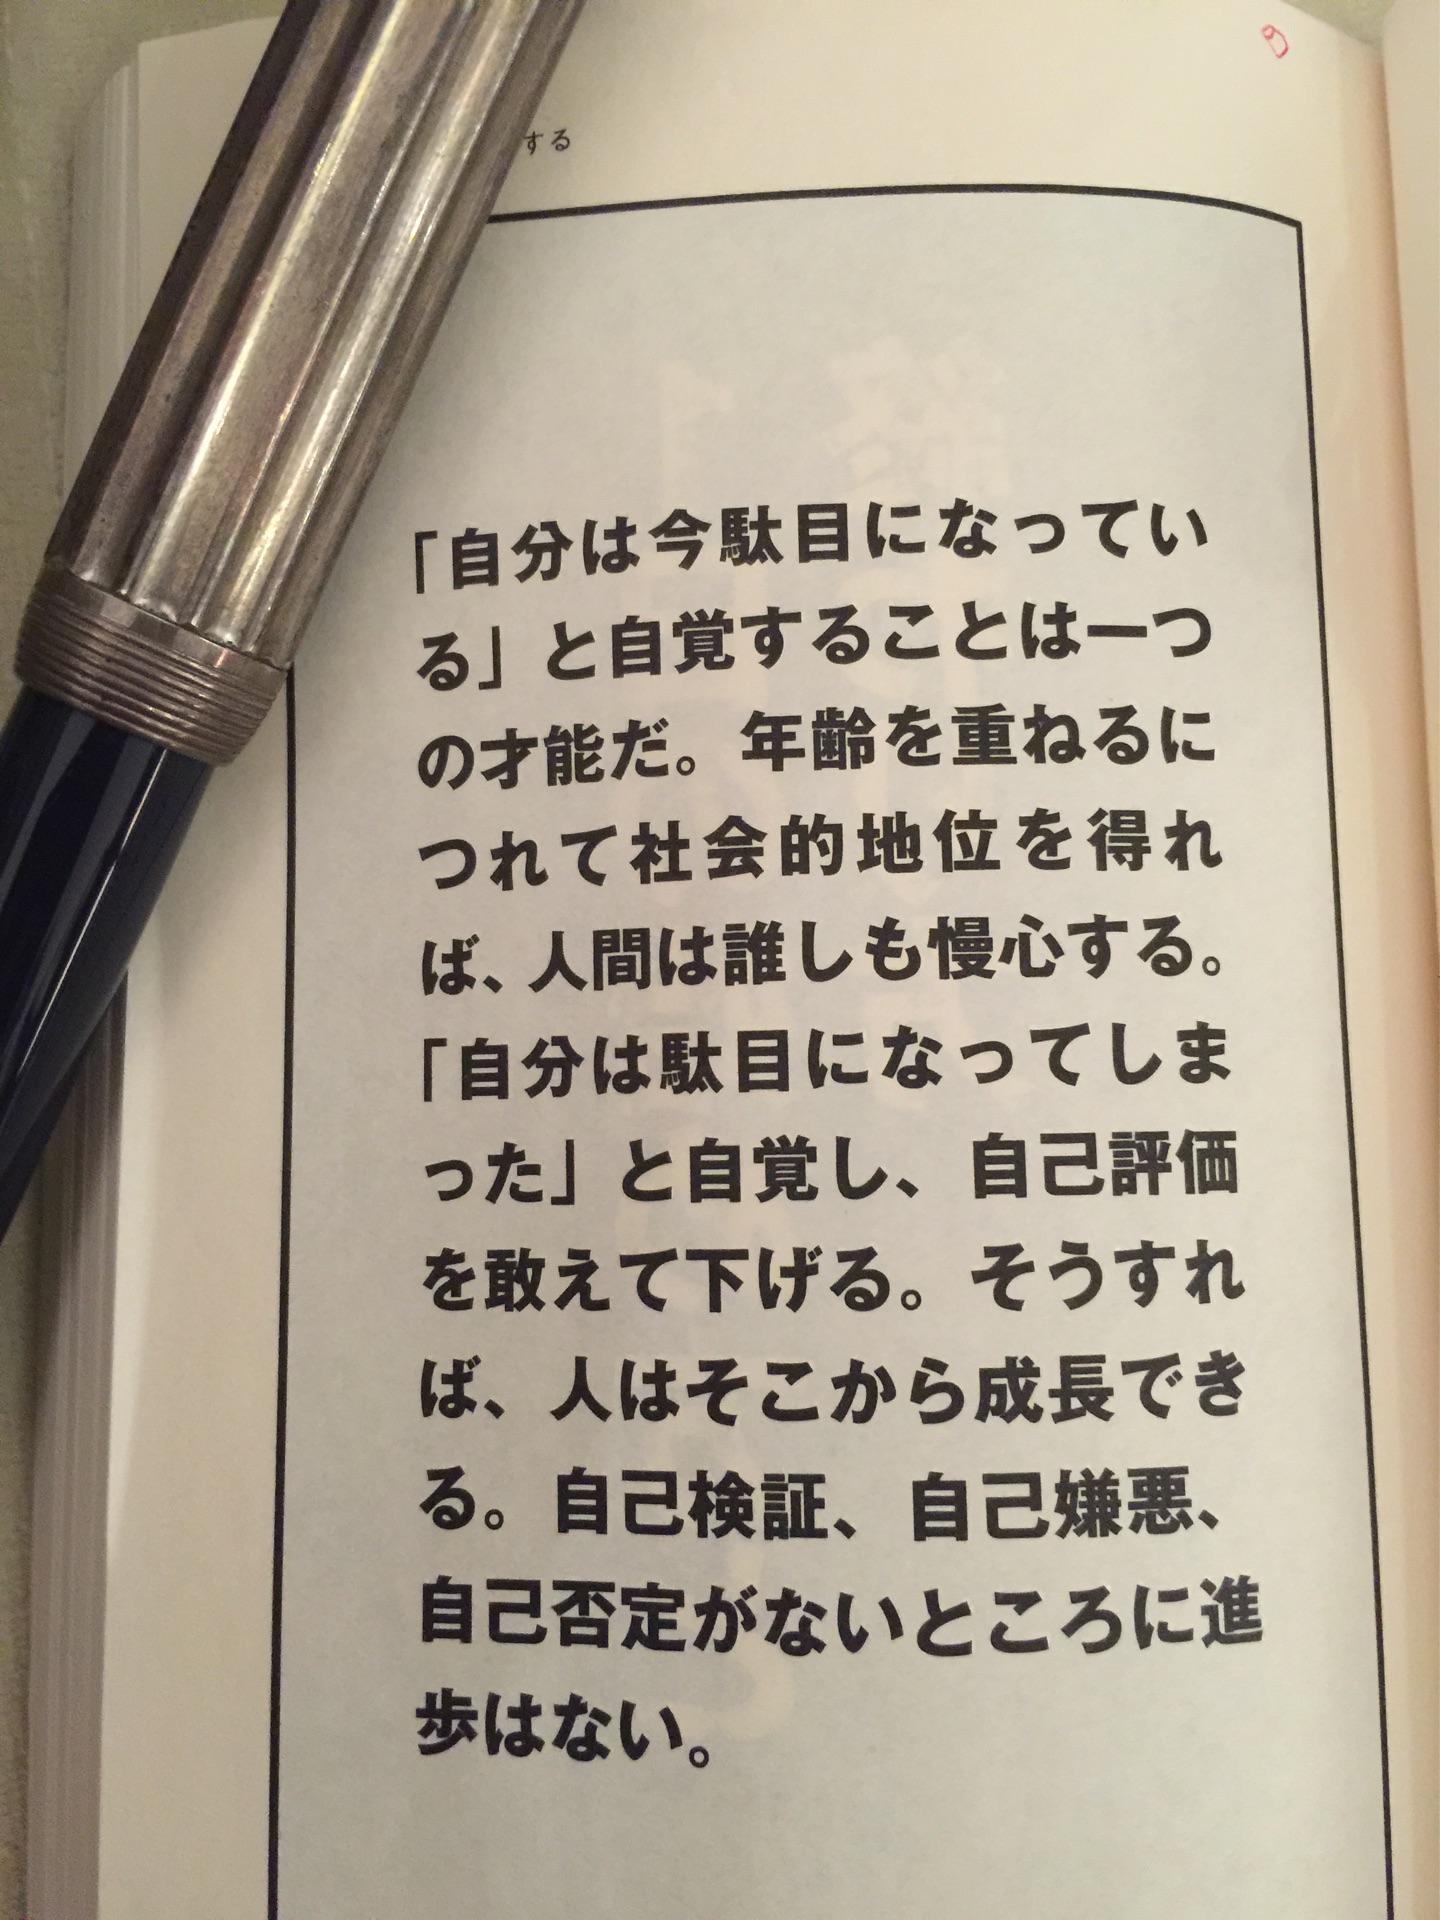 する
「自分は今駄目になってい
る」と自覚することは一つ
の才能だ。年齢を重ねるに
つれて社会的地位を得れ
ば、人間は誰しも慢心する。
「自分は駄目になってしま
った」と自覚し、自己評価
を敢えて下げる。そうすれ
ば、人はそこから成長でき
る。自己検証、自己嫌悪、
自己否定がないところに進
歩はない。